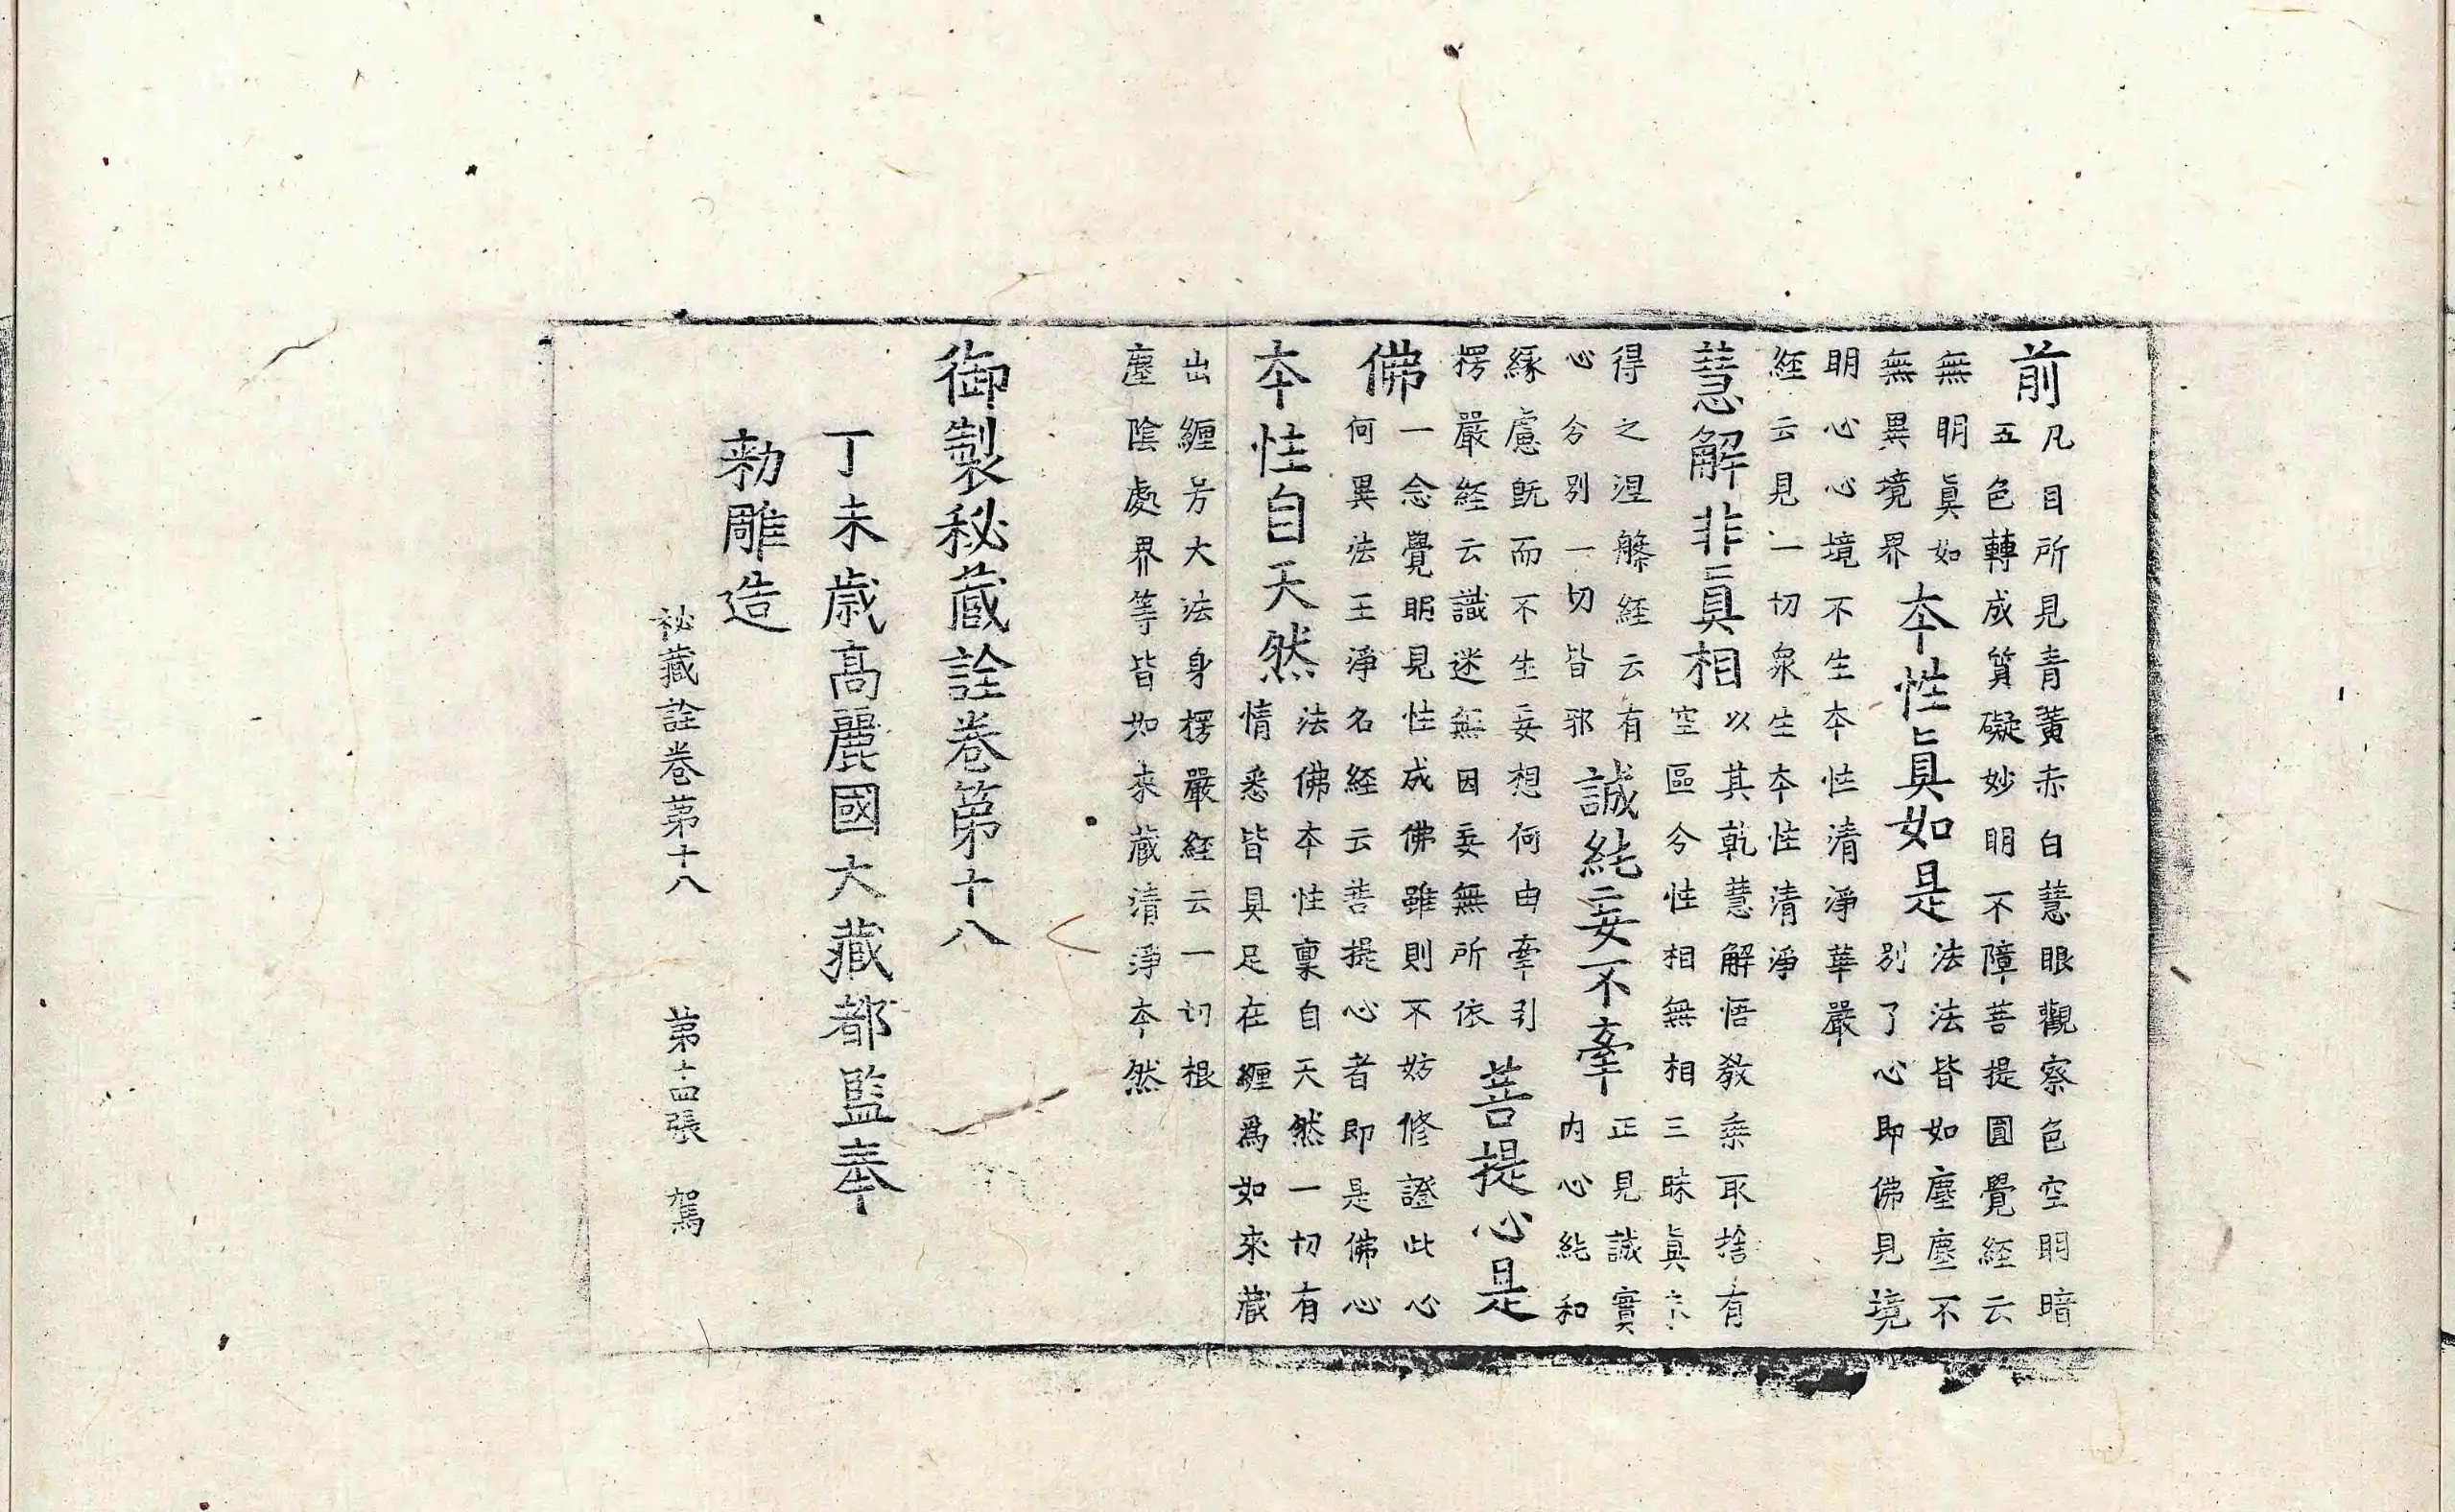 前凡目所見青黃赤白慧眼觀察色空明暗
五色轉成質礙妙明不障菩提圓覺經云
無明眞如
無異境界
本性眞如是法法皆如塵塵不
別了心即佛見境
明心心境不生本性清淨華嚴
經云見一切衆生本性清淨
慧解非眞相以其乾慧解悟教乘取捨有
空區分性相無相三昧眞
得之涅槃經云有
心分別一切皆邪
誠純妄不牽正見誠實
內心純和
緣慮旣而不生妄想何由牽引
楞嚴經云識迷無因妄無所依
菩提心是
佛一念覺明見性成佛雖則不妨修證此心
何異法王淨名經云菩提心者即是佛心
本性自天然法佛本性稟自天然一切有
情悉皆具足在纏爲如來藏
出纏号大法身楞嚴經云一切根
塵陰處界等皆如來藏淸淨本然
御製秘藏詮卷第十八
丁未歲高麗國大藏都監奉
勅雕造
祕藏詮卷第十八 第十四張 駕